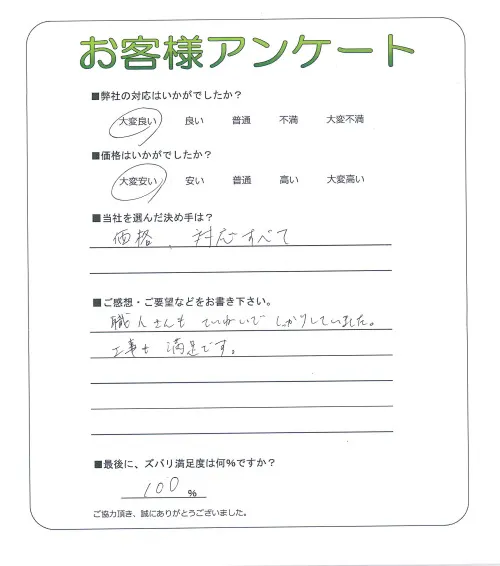 お客様アンケート
■弊社の対応はいかがでしたか？
大変良い 良い 普通 不満 大変不満
■価格はいかがでしたか？
大変安い 安い 普通 高い 大変高い
■当社を選んだ決め手は？
価格、対応すべて
■ご感想・ご要望などをお書き下さい。
職人さんもていねいでしっかりしていました。
工事も満足です。
■最後に、ズバリ満足度は何％ですか？
100 %
ご協力頂き、誠にありがとうございました。